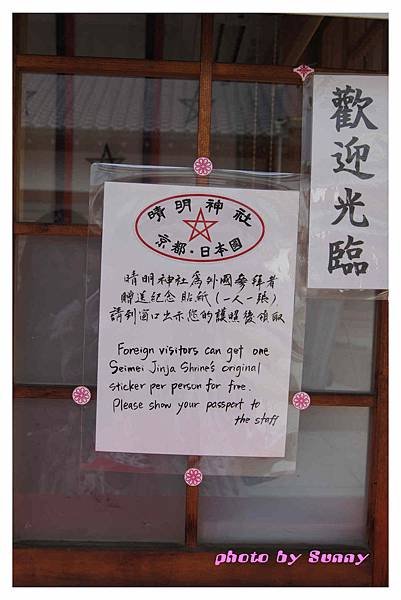 晴明神社
京都・日本國
晴明神社為外國參拜者
贈送紀念貼紙(一人一張)
請到窗口出示您的護照後領取
Foreign visitors can get one
Seimei Jinja Shrine's original
sticker per person for free.
Please show your passport to
the staff
歡迎光臨
photo by Sunny